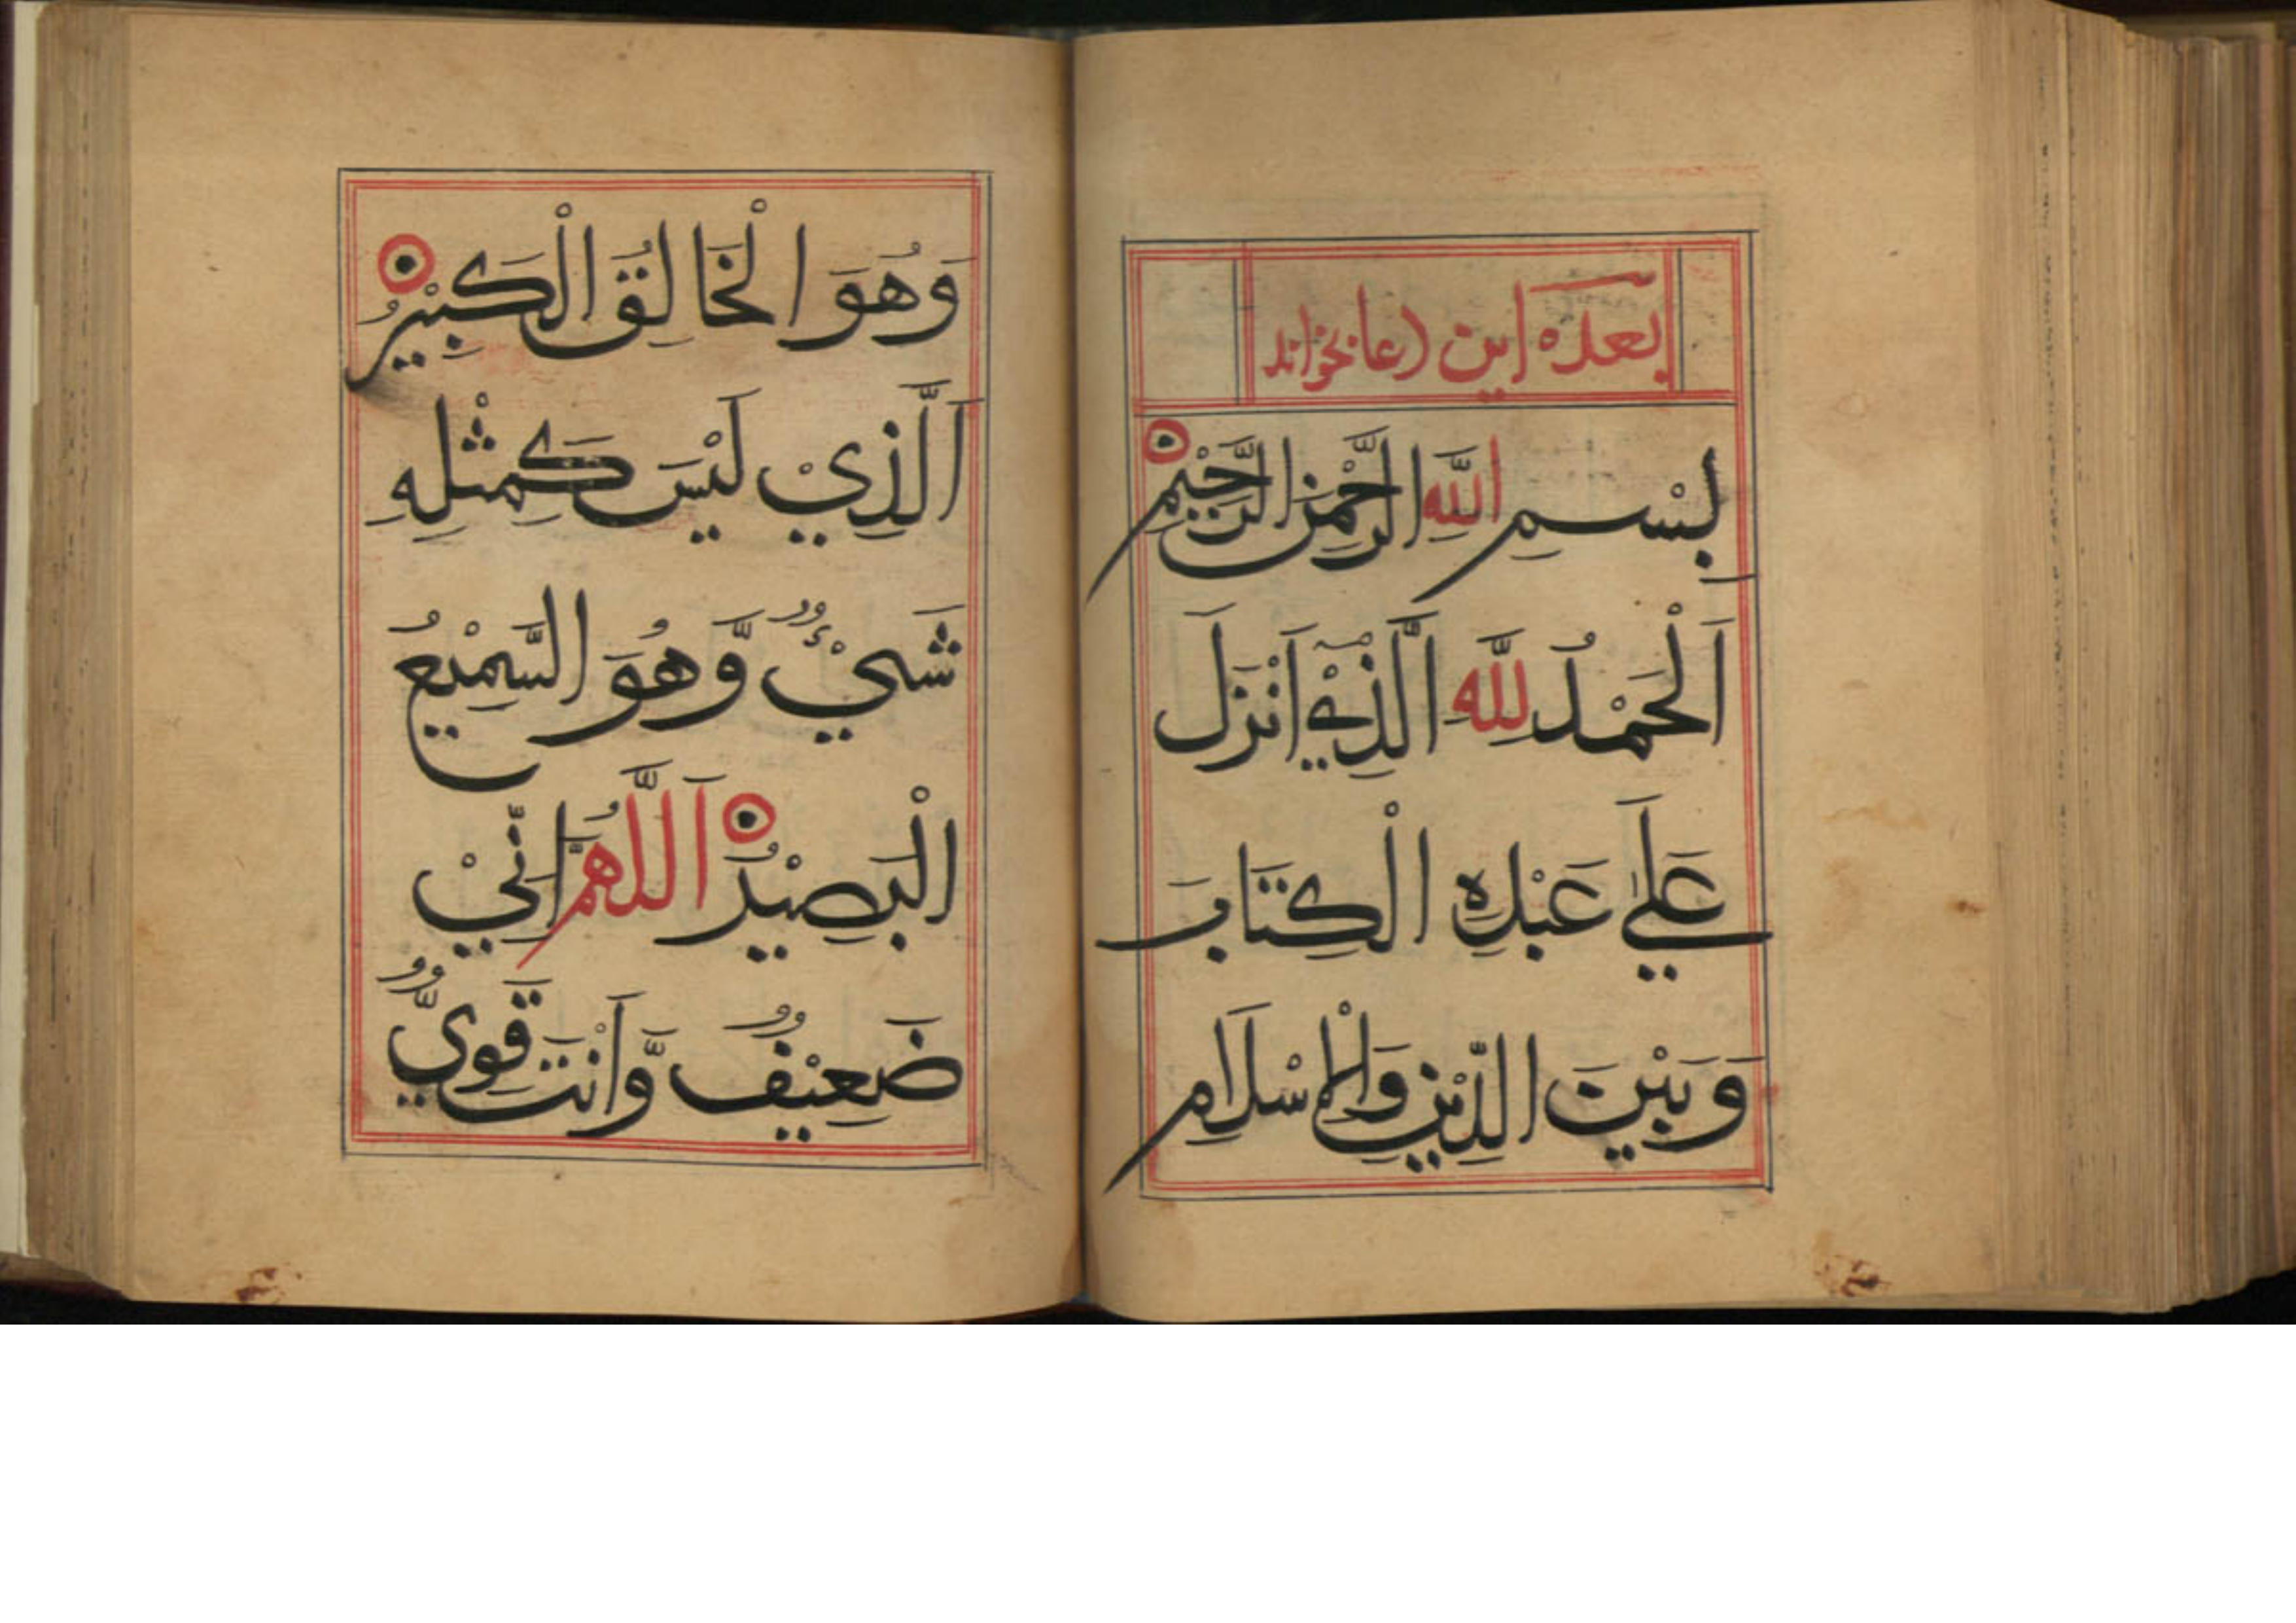 بعده این دعا بخواند
بِسْمِ اللّٰهِ الرَّحْمٰنِ الرَّحِيْمِ
اَلْحَمْدُ لِلّٰهِ الَّذِيْ اَنْزَلَ
عَلٰي عَبْدِهِ الْكِتَابَ
وَبَيْنَ الدِّيْنِ وَالْاِسْلَامِ
وَهُوَ الْخَالِقُ الْكَبِيْرُ
اَلَّذِيْ لَيْسَ كَمِثْلِهِ
شَيْءٌ وَّهُوَ السَّمِيْعُ
الْبَصِيْرُ اَللّٰهُمَّ اِنِّيْ
ضَعِيْفٌ وَّاَنْتَ قَوِيٌّ